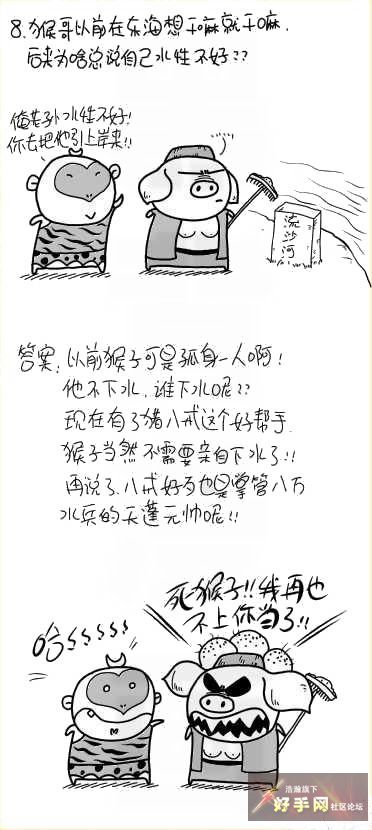 8.猴哥以前在东海想干嘛就干嘛.
后来为啥总说自己水性不好??
俺老孙水性不好!
你去把他引上岸来!!
流沙河
答案:以前猴子可是孤身一人啊!
他不下水.谁下水呢??
现在有了猪八戒这个好帮手.
猴子当然不需要亲自下水了!!
再说了.八戒好歹也是掌管八万
水兵的天蓬元帅呢!!
哈
死猴子!!我再也
不上你当了!!
浩瀚旗下
好手网社区论坛